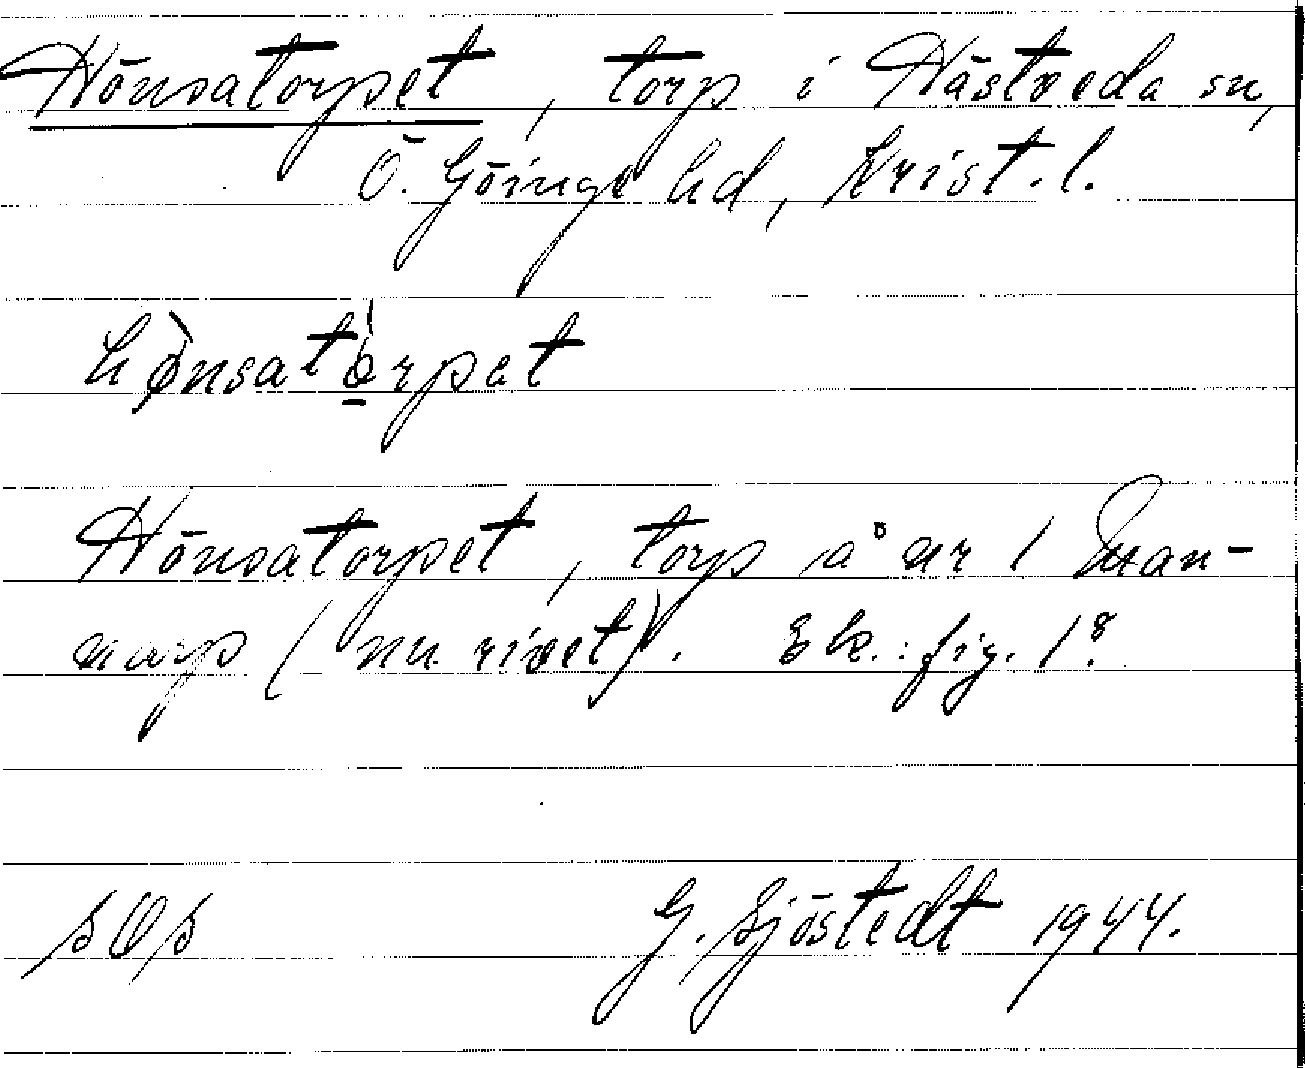 Hönsatorpet, torp i Hästveda sn,
Ö. Göinge hd, Krist. l.
hø̀nsatò̱rpet
Hönsatorpet, torp å nr 1 Man-
narp (nu rivet). Ek.: fig. 1⁸.
G. Sjöstedt 1944.